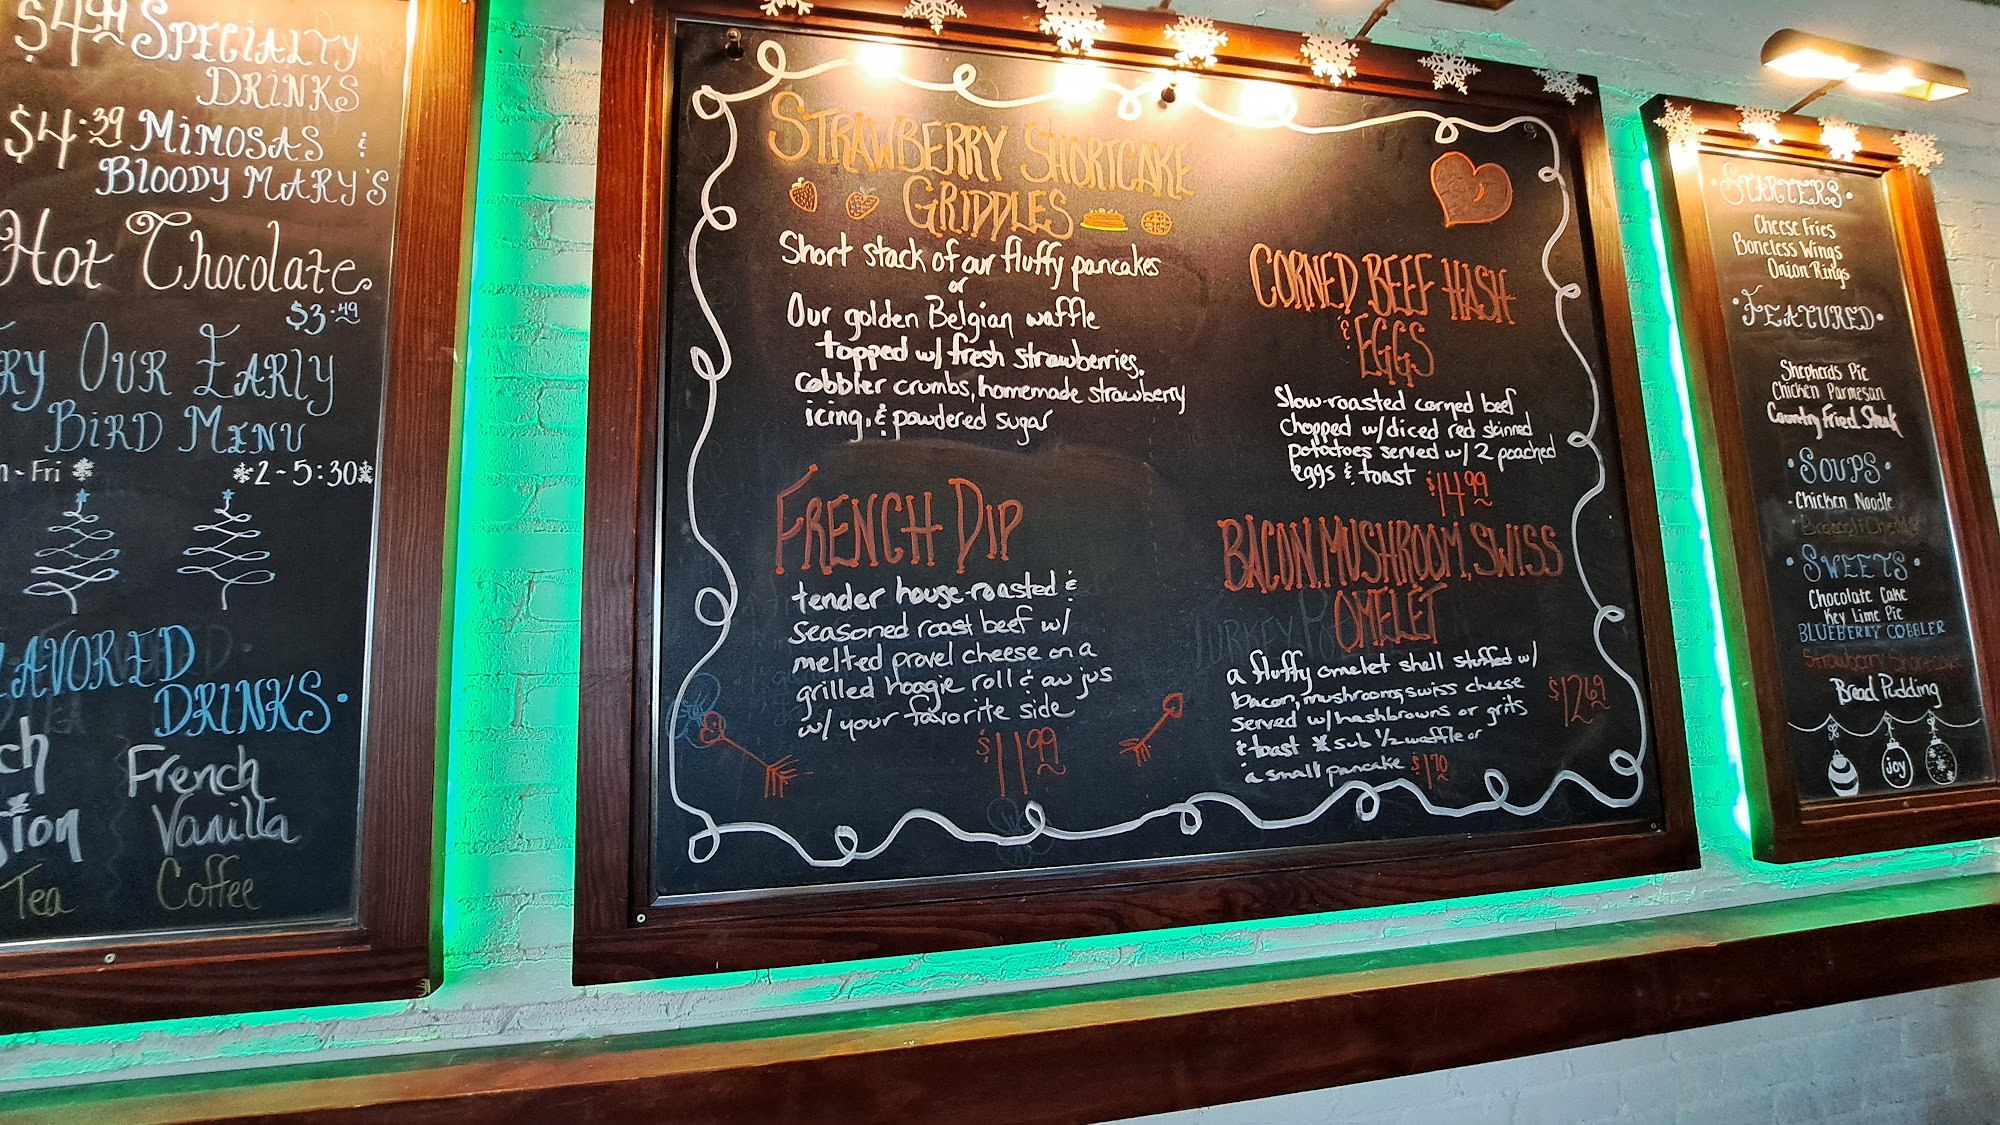 $4.49 SPECIALTY
DRINKS
$4.39 MIMOSAS &
BLOODY MARY'S
Hot Chocolate
$3.49
RY OUR EARLY
BIRD MENU
n-Fri *2-5:30*
LAVORED
DRINKS.
French
Vanilla
Tea Coffee
STRAWBERRY SHORTCAKE
GRIDDLES
Short stack of our fluffy pancakes
or
Our golden Belgian waffle
topped w/ fresh strawberries,
cobbler crumbs, homemade strawberry
icing, & powdered sugar
FRENCH DIP
tender house-roasted &
seasoned roast beef w/
melted provel cheese on a
grilled hoagie roll & au jus
w/ your favorite side
$11.99
CORNED BEEF HASH
& EGGS
Slow-roasted corned beef
chopped w/ diced red skinned
potatoes served w/ 2 poached
eggs & toast $14.99
BACON, MUSHROOM, SWISS
OMELET
a fluffy omelet shell stuffed w/
bacon, mushrooms, swiss cheese
served w/ hashbrowns or grits $12.69
& toast * sub 1/2 waffle or
a small pancake $1.70
·STARTERS·
Cheese Fries
Boneless Wings
Onion Rings
·FEATURED·
Shepherds Pie
Chicken Parmesan
Country Fried Steak
·SOUPS·
-Chicken Noodle
Broccoli Cheddar
·SWEETS·
Chocolate Cake
Key Lime Pie
BLUEBERRY COBBLER
Strawberry Shortcake
Bread Pudding
joy